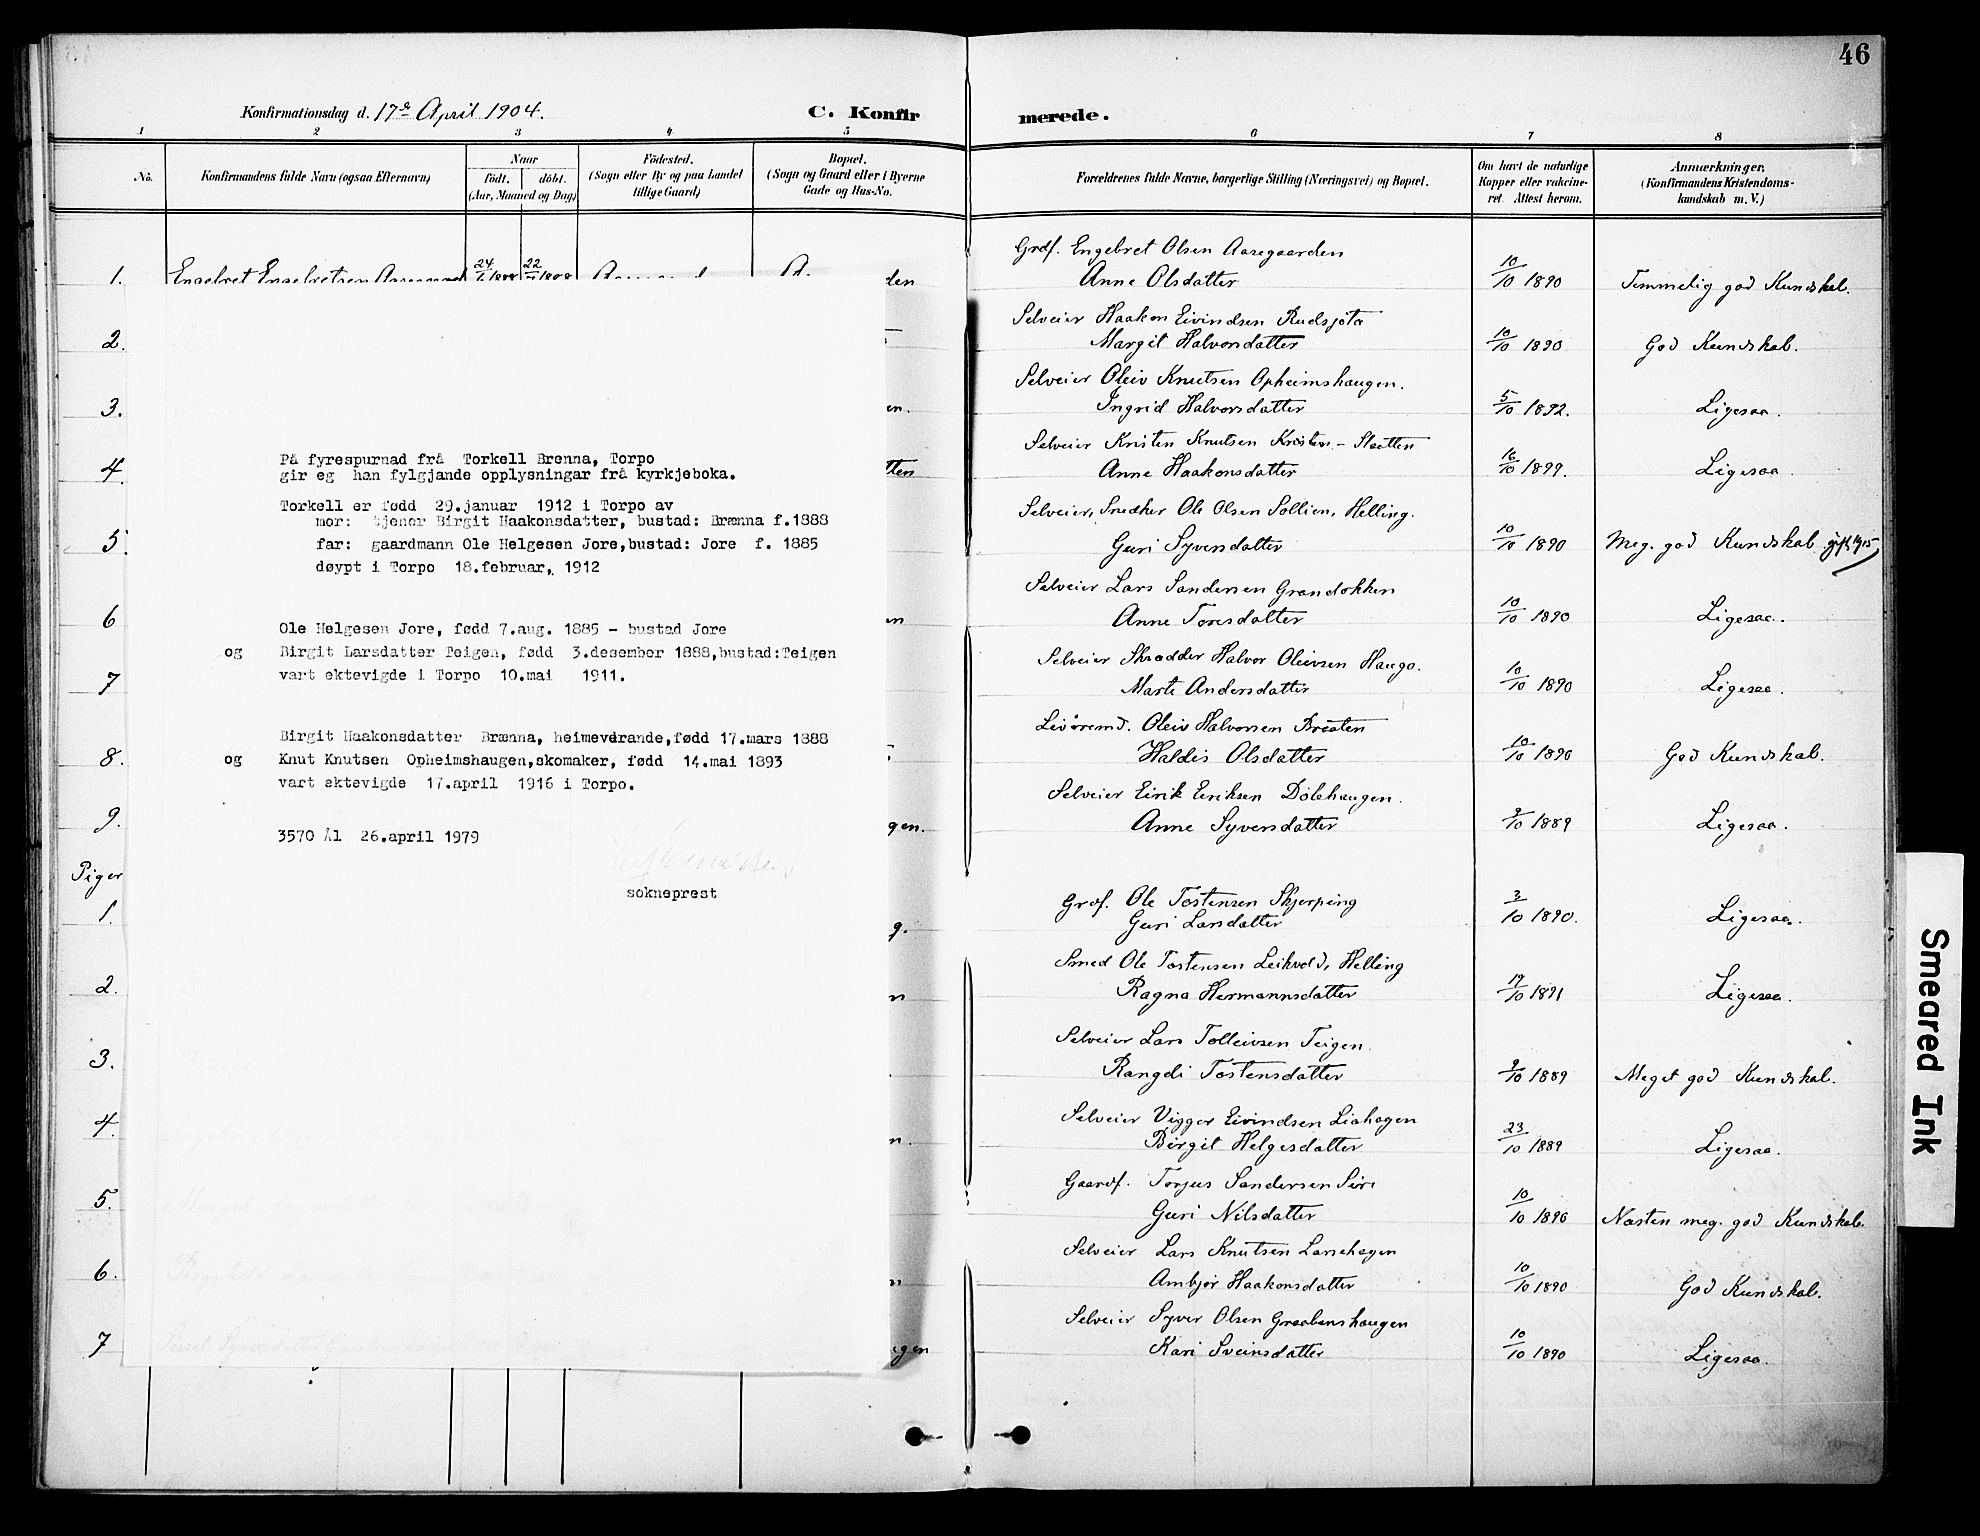 46
Konfirmationsdag d. 17de April 1904.
C. Konfirmerede.
1 2 3 4 5 6 7 8
No.
Konfirmandens fulde Navn (ogsaa Efternavn)
Naar
födt. döbt.
(Aar, Maaned og Dag)
Födested.
(Sogn eller By og paa Landet
tillige Gaard)
Bopæl.
(Sogn og Gaard eller i Byerne
Gade og Hus-No.
Forældrenes fulde Navne, borgerlige Stilling (Næringsvei) og Bopæl.
Om havt de naturlige
Kopper eller vakcine-
ret. Attest herom.
Anmærkninger.
(Konfirmandens Kristendoms-
kundskab m. V.)
1. Engebret Engebretsen 24 22
Grdf. Engebret Olsen Aasegaarden
Anne Olsdatter 10/10 1890 Temmelig god Kundskab.
2. Selveier Haakon Eivindsen Rudsjøta
Margit Halvorsdatter 10/10 1890 God Kundskab.
3. Selveier Oleiv Knutsen Opheimshaugen.
Ingrid Halvorsdatter 5/10 1892. Ligesaa.
4 Selveier Kristen Knutsen Kristen-Sletten
Anne Haakonsdatter 16/10 1899. Ligesaa.
5. Selveier, Snedker Ole Olsen Sollien, Helling.
Guri Syversdatter 10/10 1890 Meg. god Kundskab gift 1915
6 Selveier Lars Sandersen Grandokken
Anne Toresdatter 10/10 1890 Ligesaa.
7 Selveier Skrædder Halvor Oleivsen Hauga.
Marte Andersdatter 10/10 1890 Ligesaa.
8. Livøremd. Oleiv Halvorsen Bråten
Haldis Olsdatter 10/10 1890 God Kundskab.
9. Selveier Eirik Eiriksen Dölehaugen.
Anne Syversdatter 9/10 1889 Ligesaa.
Piger
1. Grdf. Ole Tostensen Skjerping
Guri Larsdatter 3/10 1890. Ligesaa.
2. Smed Ole Tostensen Leikvold, Helling
Ragna Hermannsdatter 19/10 1891 Ligesaa.
3. Selveier Lars Tolleivsen Teigen.
Rangdi Tostensdatter 9/10 1889 Meget god Kundskab.
4. Selveier Vigger Eivindsen Liahagen
Birgit Helgesdatter 23/10 1889 Ligesaa.
5. Gaardf. Torjus Sandersen Sire
Guri Nilsdatter 10/10 1890 Næsten meg. god Kundskab.
6. Selveier Lars Knutsen Larsehagen
Ambjør Haakonsdatter 10/10 1890 God Kundskab.
7 Selveier Syver Olsen Graabenshaugen
Kari Sveinsdatter 10/10 1890 Ligesaa.
På fyrespurnad frå Torkell Brenna, Torpo
gir eg han fylgjande opplysningar frå kyrkjeboka.
Torkell er fødd 29.januar 1912 i Torpo av
mor: tjener Birgit Haakonsdatter, bustad: Brænna f.1888
far: gaardmann Ole Helgesen Jore,bustad: Jore f. 1885
døypt i Torpo 18.februar, 1912
Ole Helgesen Jore, fødd 7.aug. 1885 - bustad Jore
og Birgit Larsdatter Teigen, fødd 3.desember 1888,bustad:Teigen
vart ektevigde i Torpo 10.mai 1911.
Birgit Haakonsdatter Brænna, heimeverande,fødd 17.mars 1888
og Knut Knutsen Opheimshaugen,skomaker, fødd 14.mai 1893
vart ektevigde 17.april 1916 i Torpo.
3570 Ål 26.april 1979
sokneprest
Smeared Ink